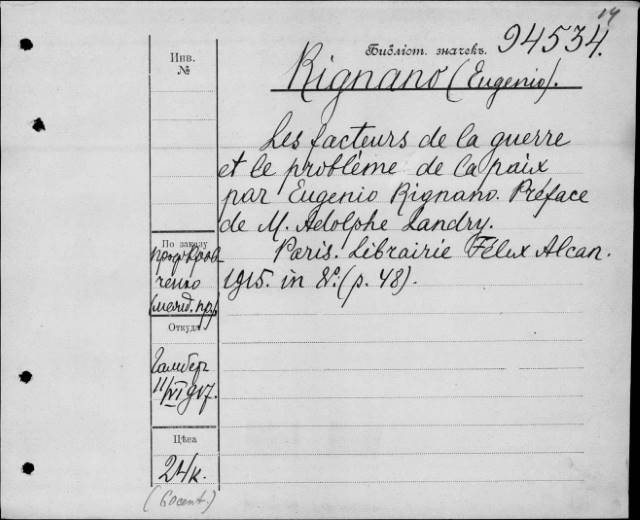 14
Библіот. значекъ. 94534.
Rignano (Eugenio).
Инв.
№
Les facteurs de la guerre
et le problème de la paix
par Eugenio Rignano. Préface
de M. Adolphe Landry.
Paris. Librairie Félix Alcan.
1915. in 8º. (p. 48).
По заказу
проф. Грав-
ченко
(межд. пр.)
Откуда
11/VI 917.
Цѣна
24к.
(60 cent.)